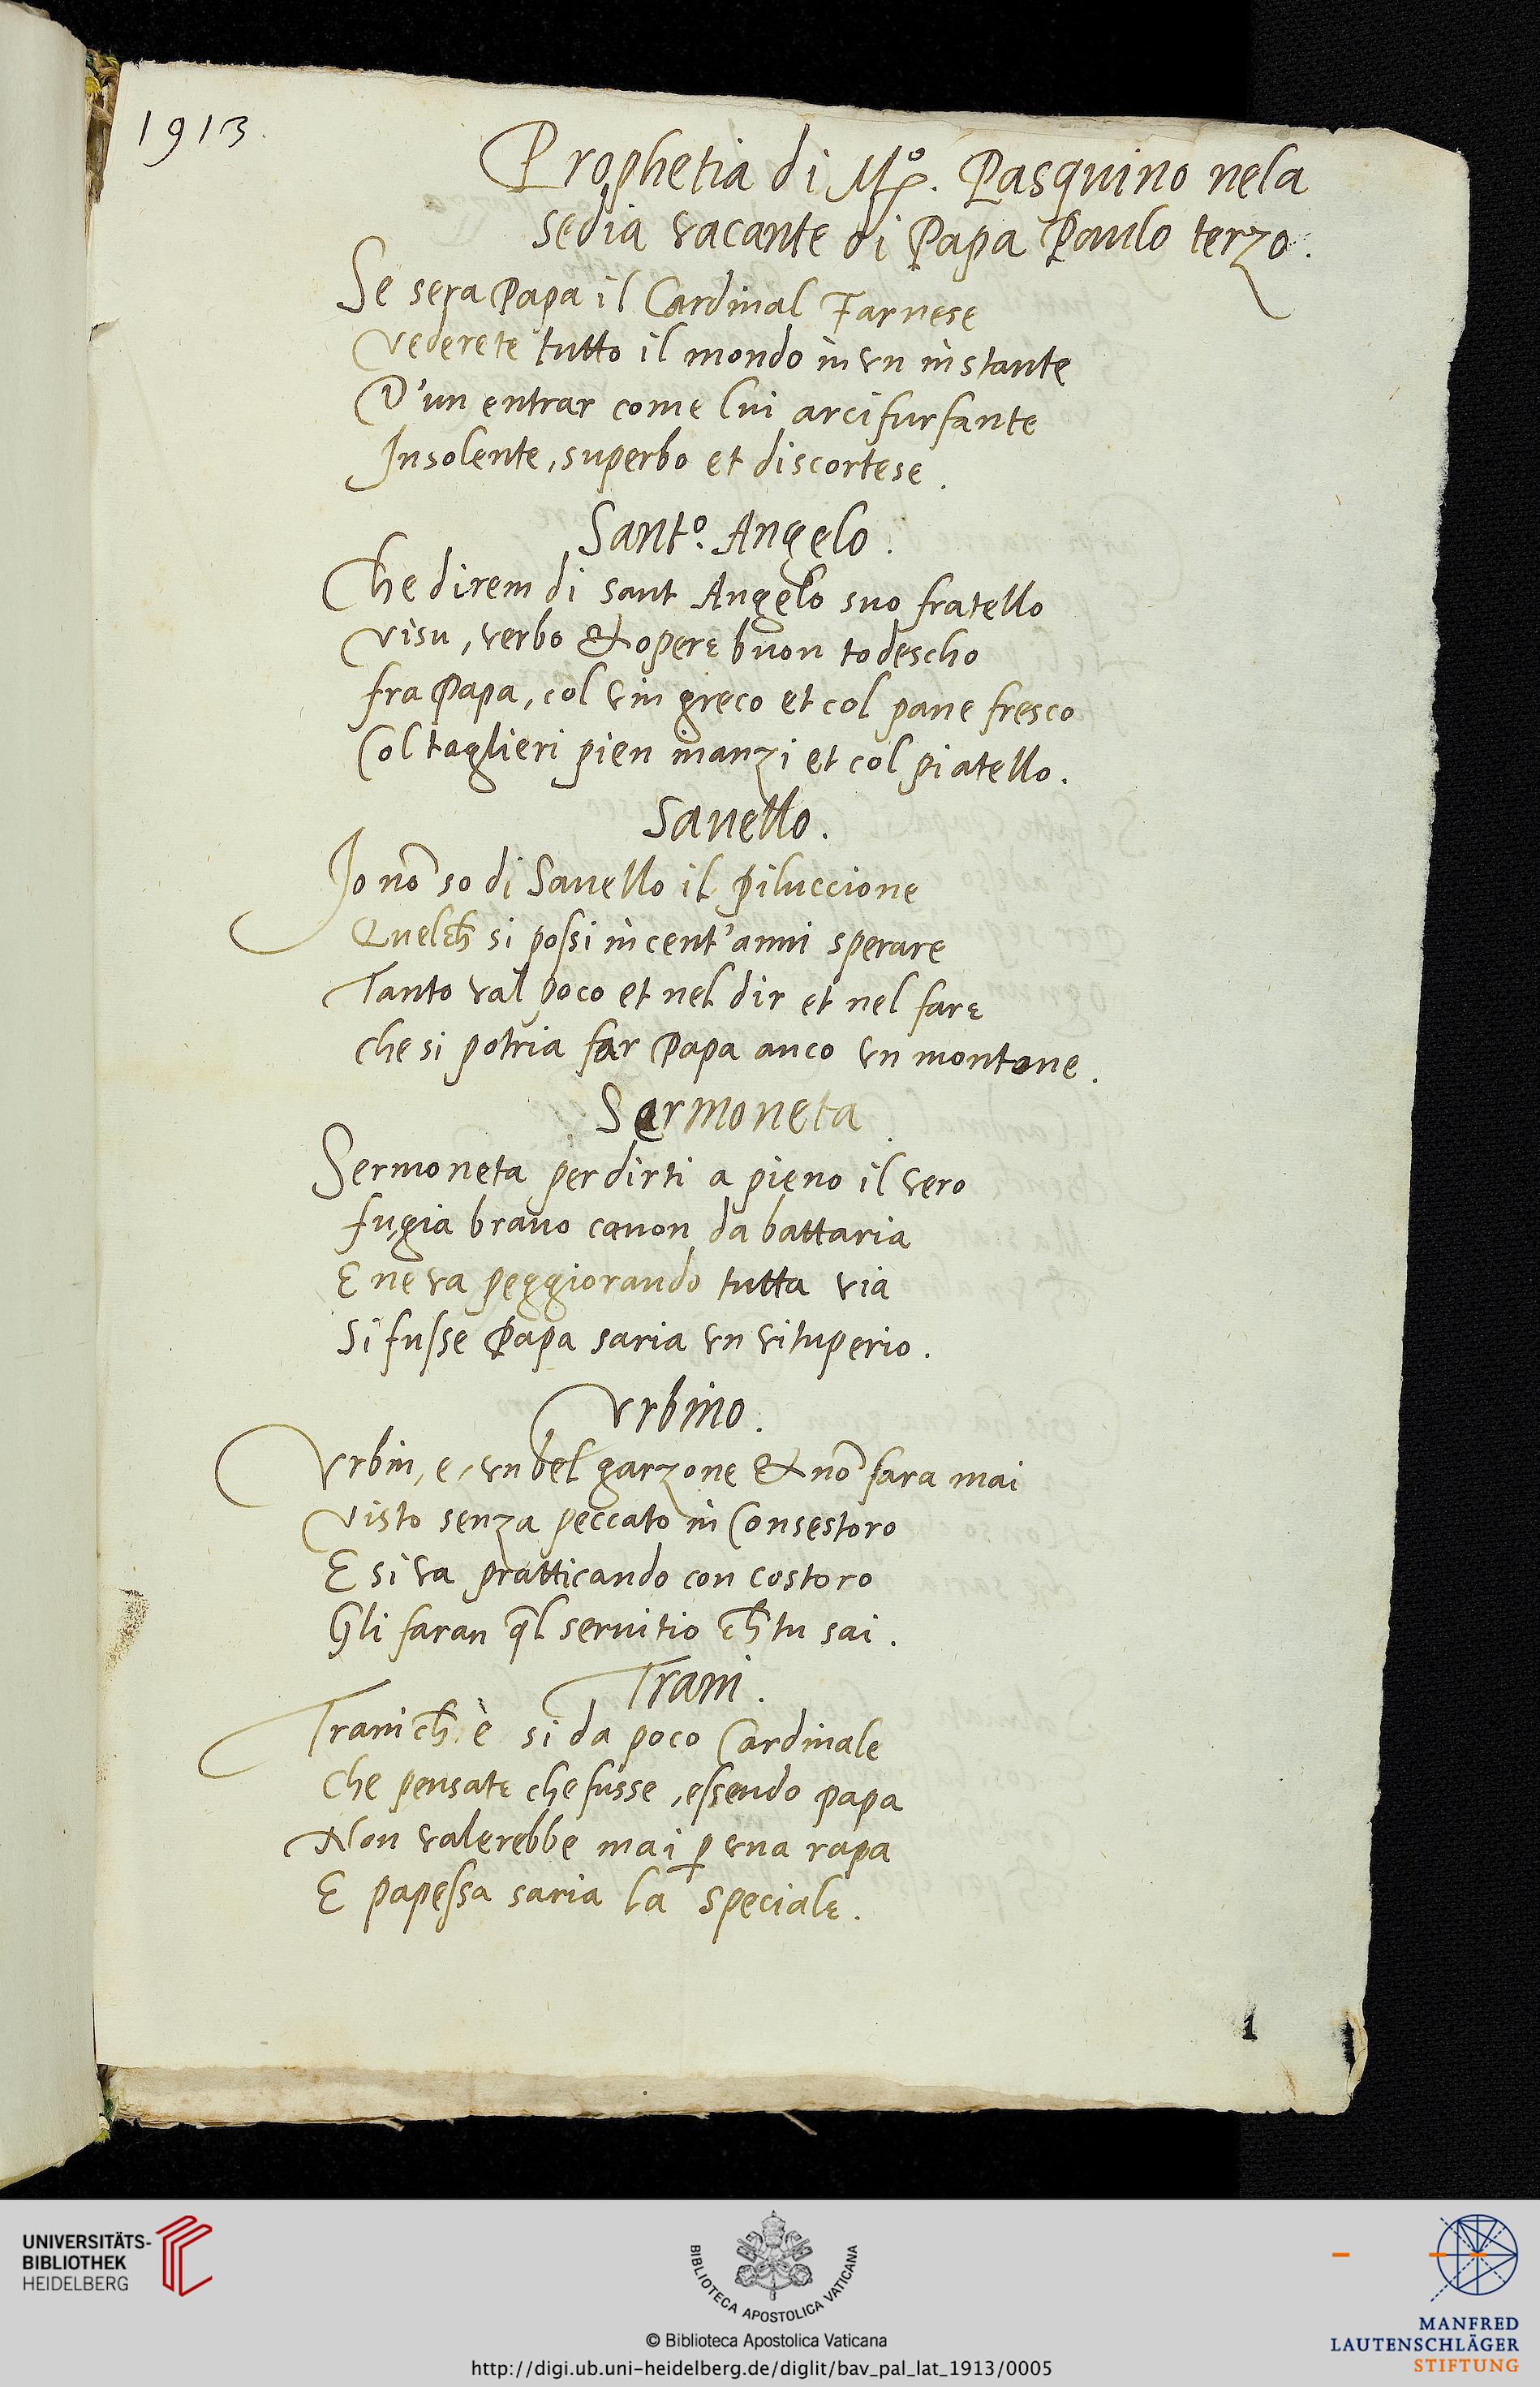 1913.
Prophetia di Mº. Pasquino nela
sedia vacante di Papa Paulo terzo.
Se sera Papa il Cardinal Farnese
Vederete tutto il mondo in un instante
D'un entrar come lui arcifurfante
Insolente, superbo et discortese.
Santº. Angelo.
Che direm di sant Angelo suo fratello
Visu, verbo & opere buon todescho
fra Papa, col vin greco et col pane fresco
Col taglieri pien inanzi et col piatello.
Savello.
Io nō so di Savello il piluccione
Quelch̄ si possi in cent'anni sperare
Tanto val poco et nel dir et nel fare
che si potria far Papa anco un montone.
Sermoneta
Sermoneta per dirti a pieno il vero
fu gia bravo canon da battaria
E ne va peggiorando tutta via
Si fusse Papa saria un vituperio.
Urbino.
Urbin, e, un bel garzone & nō sara mai
Visto senza peccato in Consestoro
E si va pratticando con costoro
Gli faran q̄l servitio ch̄ tu sai.
Trani.
Trani ch̄ è si da poco Cardinale
Che pensate che fusse, essendo papa
Non valerebbe mai ꝑ una rapa
E papessa saria la speciale.
1
UNIVERSITÄTS-
BIBLIOTHEK
HEIDELBERG
BIBLIOTECA APOSTOLICA VATICANA
© Biblioteca Apostolica Vaticana
http://digi.ub.uni-heidelberg.de/diglit/bav_pal_lat_1913/0005
MANFRED
LAUTENSCHLÄGER
STIFTUNG